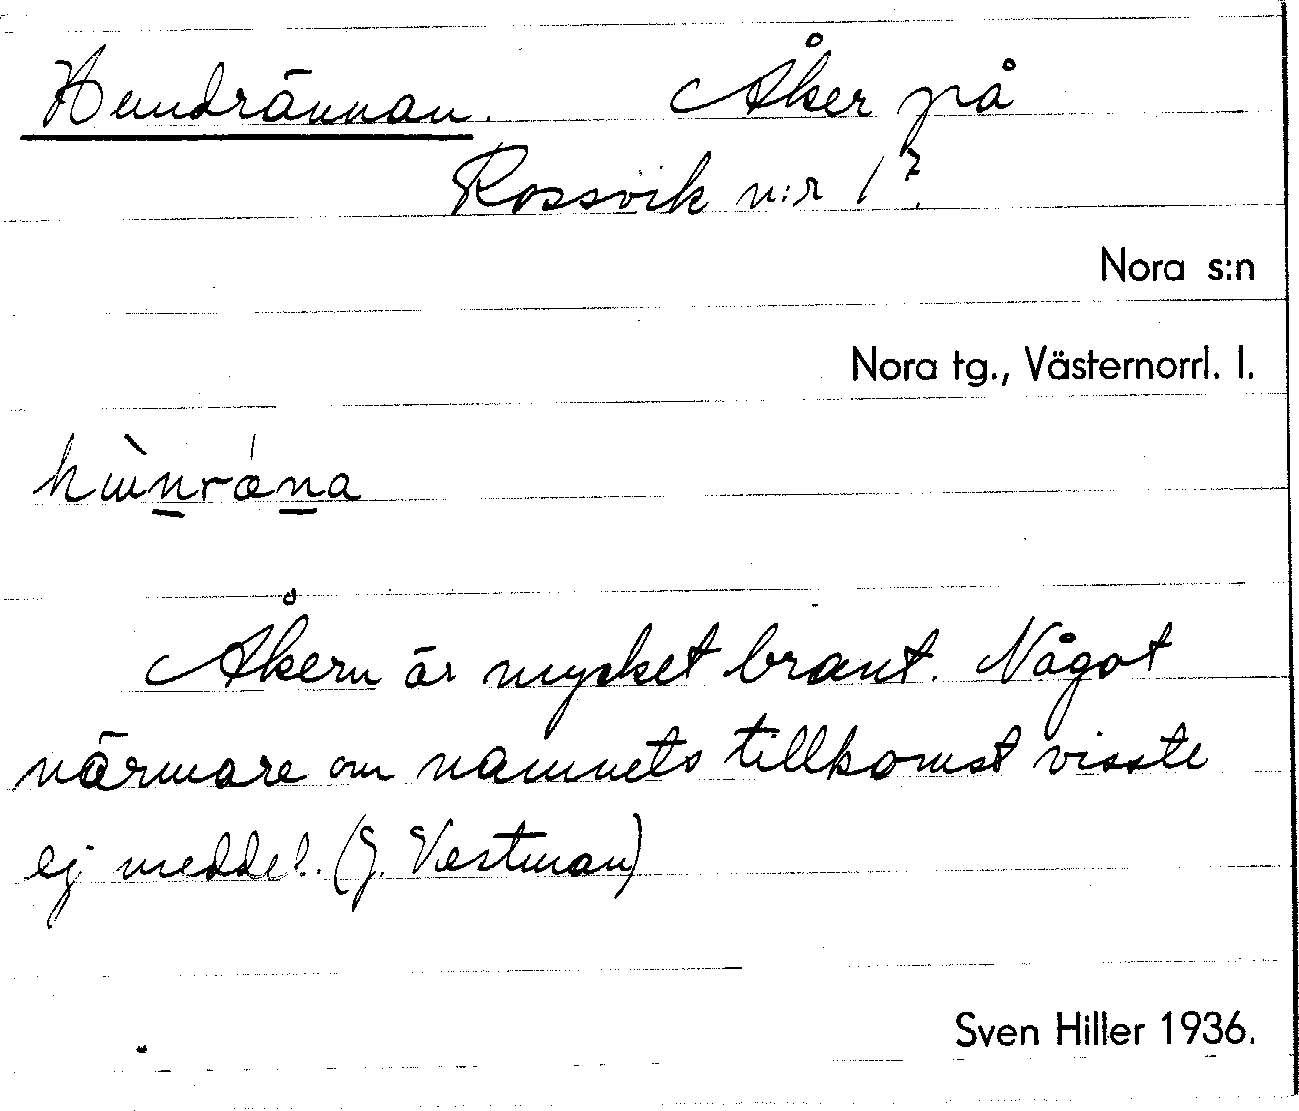 Hundrännan. Åker på
Rossvik n:r 1².
Nora s:n
Nora tg., Västernorrl. l.
Åkern är mycket brant. Något
närmare om namnets tillkomst visste
ej meddel. (J. Vestman)
Sven Hiller 1936.